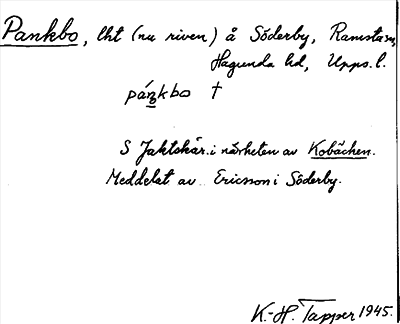 Pankbo, lht (nu riven) å Söderby, Ramsta sn,
Hagunda hd, Upps. l.
páŋkbo †
S Jaktskär. i närheten av Kobäcken.
Meddelat av Ericsson i Söderby.
K.-H. Tapper 1945.